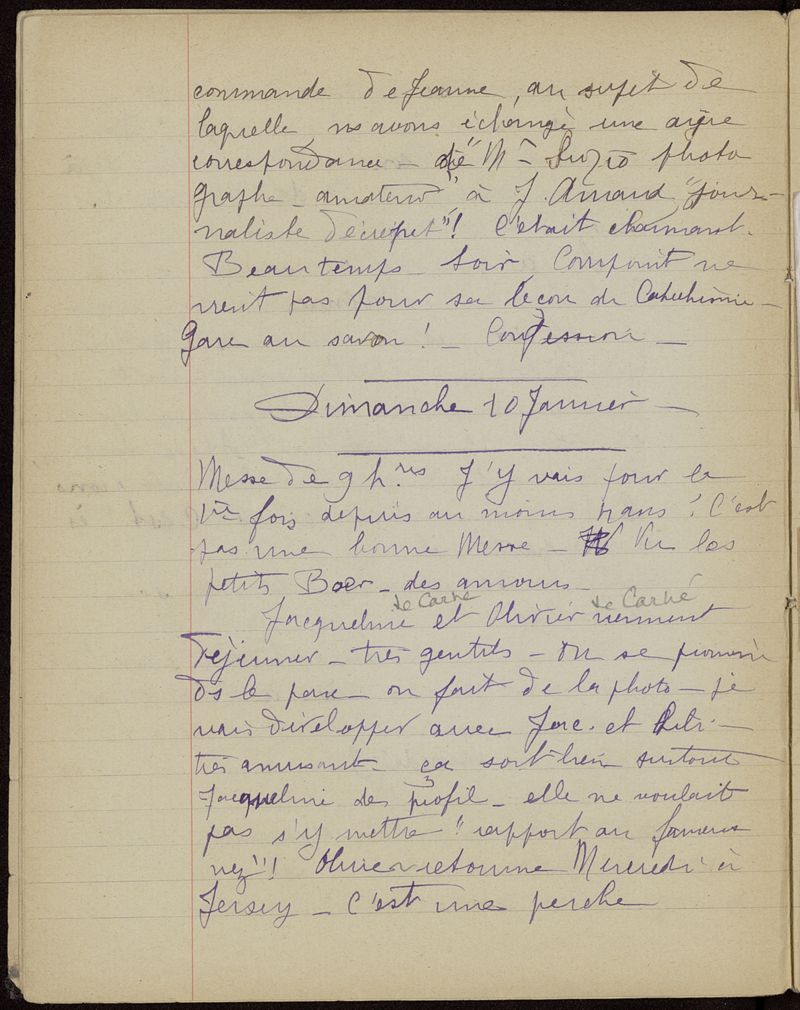 commande de Jeanne, au sujet de
laquelle ns avons échangé une aigre
correspondance - de "Mr photo
graphe - amateur" à J. Armand "jour-
naliste décrépit"! C'était charmant.
Beau temps - Soir, Compoint ne
vient pas pour sa leçon de Catéchisme -
gare au savon! - Confession -
Dimanche 10 Janvier -
Messe de 9 hres J'y vais pour la
1re fois depuis au moins ans! C'est
pas une bonne Messe - Vu les
petits Boër - des amours -
de Carné de Carné
Jacqueline et Olivier viennent
déjeuner - très gentils - On se promène
ds le parc - on fait de la photo - je
vais développer avec Jac. et -
très amusant - ça sort bien surtout
Jacqueline de profil - elle ne voulait
pas s'y mettre "rapport au fameux
nez"! Olivier retourne Mercredi à
Jersey - C'est une perche